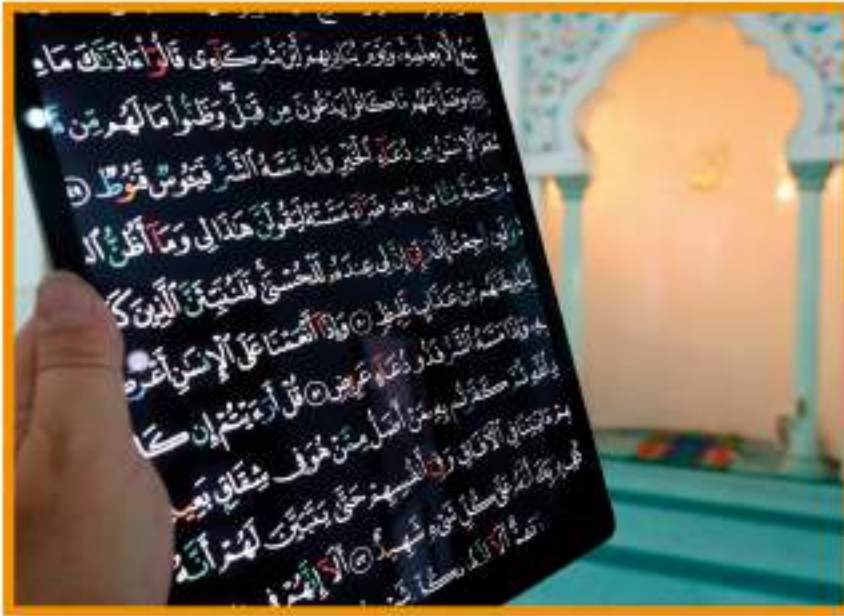 إِلَّا بِعِلْمِهِۦ وَيَوْمَ يُنَادِيهِمْ أَيْنَ شُرَكَآءِى قَالُوٓا۟ ءَاذَنَّـٰكَ مَا
وَضَلَّ عَنْهُم مَّا كَانُوا۟ يَدْعُونَ مِن قَبْلُ وَظَنُّوا۟ مَا لَهُم مِّن
ٱلْإِنسَـٰنُ مِن دُعَآءِ ٱلْخَيْرِ وَإِن مَّسَّهُ ٱلشَّرُّ فَيَـُٔوسٌ قَنُوطٌ ٤٩
رَحْمَةً مِّنَّا مِنۢ بَعْدِ ضَرَّآءَ مَسَّتْهُ لَيَقُولَنَّ هَـٰذَا لِى وَمَآ أَظُنُّ
رُّجِعْتُ إِلَىٰ رَبِّىٓ إِنَّ لِى عِندَهُۥ لَلْحُسْنَىٰ فَلَنُنَبِّئَنَّ ٱلَّذِينَ
وَلَنُذِيقَنَّهُم مِّنْ عَذَابٍ غَلِيظٍ ٥٠ وَإِذَآ أَنْعَمْنَا عَلَى ٱلْإِنسَـٰنِ أَعْرَضَ
وَإِذَا مَسَّهُ ٱلشَّرُّ فَذُو دُعَآءٍ عَرِيضٍ ٥١ قُلْ أَرَءَيْتُمْ إِن كَا
ٱللَّهِ ثُمَّ كَفَرْتُم بِهِۦ مَنْ أَضَلُّ مِمَّنْ هُوَ فِى شِقَاقٍۭ بَعِيدٍ
ءَايَـٰتِنَا فِى ٱلْـَٔافَاقِ وَفِىٓ أَنفُسِهِمْ حَتَّىٰ يَتَبَيَّنَ لَهُمْ أَنَّهُ
بِرَبِّكَ أَنَّهُۥ عَلَىٰ كُلِّ شَىْءٍ شَهِيدٌ ٥٣ أَلَآ إِنَّهُمْ فِى
أَلَآ إِنَّهُۥ بِكُلِّ